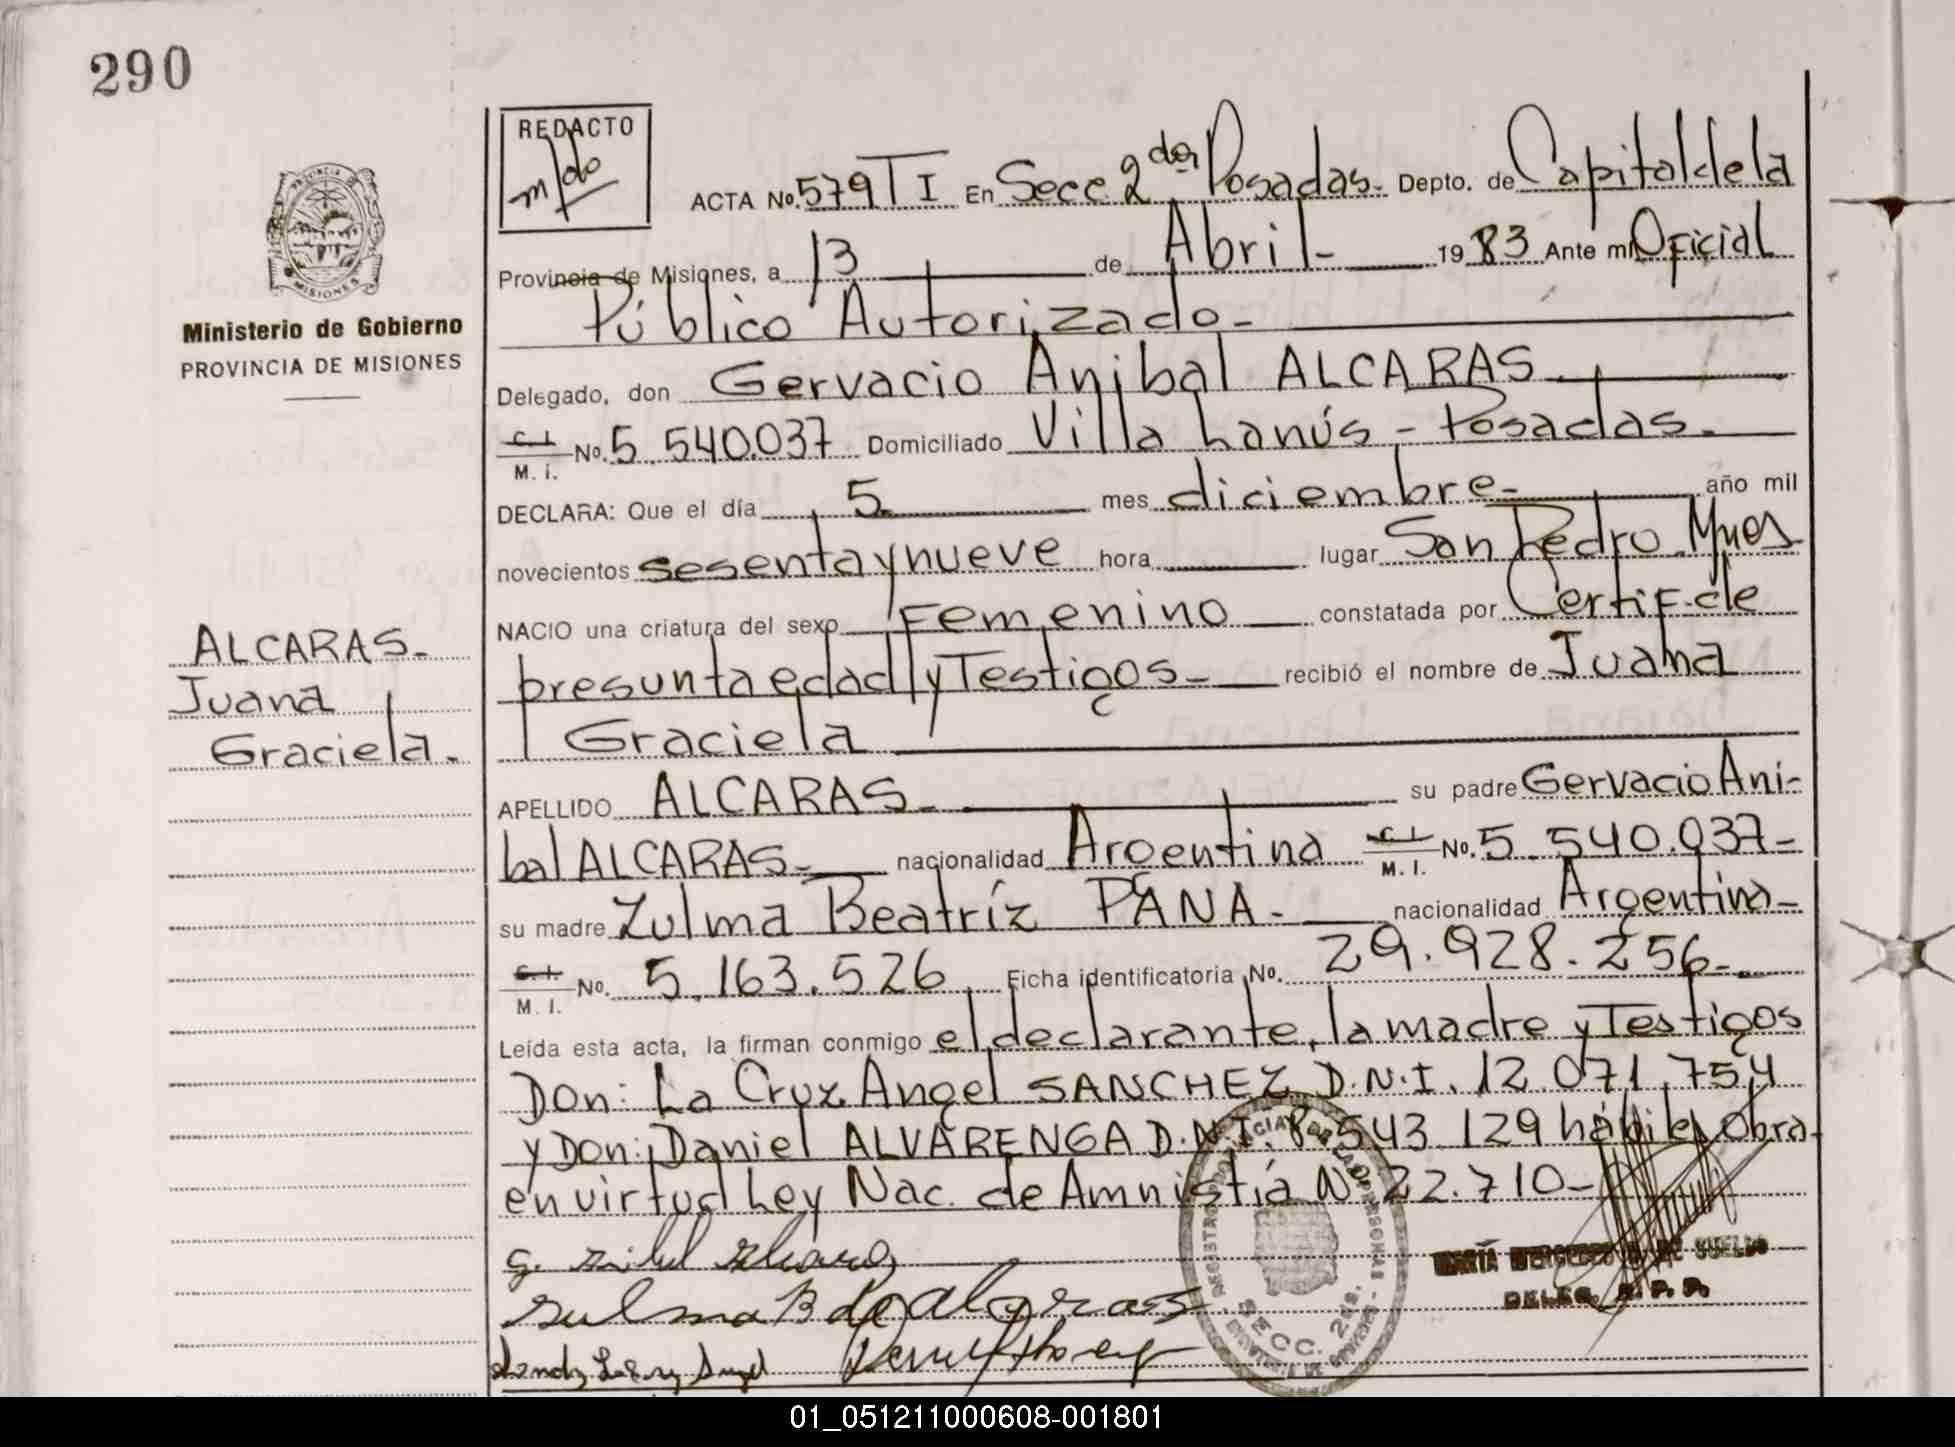 290
REDACTO
m/do
ACTA No. 579 T I En Secc. 2da Posadas- Depto. de Capital de la
Provincia de Misiones, a 13 de Abril- 1983 Ante mí Oficial
Público Autorizado-
Delegado, don Gervacio Anibal ALCARAS
C. I. M. I. No. 5.540.037 Domiciliado Villa Lanús - Posadas.
DECLARA: Que el día 5 mes diciembre- año mil
novecientos sesenta y nueve hora lugar San Pedro Mnes
NACIO una criatura del sexo Femenino constatada por Certif. de
presunta edad y Testigos- recibió el nombre de Juana
Graciela
APELLIDO ALCARAS- su padre Gervacio Aní-
bal ALCARAS- nacionalidad Argentina C. I. M. I. No. 5.540.037-
su madre Zulma Beatríz PANA- nacionalidad Argentina-
C. I. M. I. No. 5.163.526 Ficha identificatoria No. 29.928.256-
Leída esta acta, la firman conmigo el declarante, la madre y Testigos
Don: La Cruz Angel SANCHEZ D.N.I. 12.071.754
y Don: Daniel ALVARENGA D.N.I. 8.543.129 hábiles Obra
en virtud Ley Nac. de Amnistía Nº 22.710-
PROVINCIA DE MISIONES
Ministerio de Gobierno
PROVINCIA DE MISIONES
ALCARAS-
Juana
Graciela.
Zulma B de Alcaras
SECC. 2da.
DELEG. R. P. P.
01_051211000608-001801